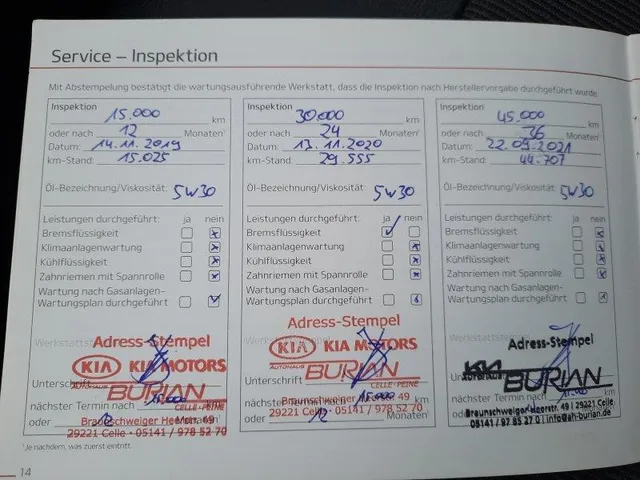 Service – Inspektion
Mit Abstempelung bestätigt die wartungsausführende Werkstatt, dass die Inspektion nach Herstellervorgabe durchgeführt wurde.
Inspektion
15.000 km
oder nach 12 Monaten¹
Datum: 14.11.2019
km-Stand: 15.025
Öl-Bezeichnung/Viskosität: 5W30
Leistungen durchgeführt: ja nein
Bremsflüssigkeit
Klimaanlagenwartung
Kühlflüssigkeit
Zahnriemen mit Spannrolle
Wartung nach Gasanlagen-
Wartungsplan durchgeführt
Adress-Stempel
KIA KIA MOTORS
Unterschrift
AUTOHAUS BURIAN
CELLE · PEINE
nächster Termin nach 15.000
Braunschweiger Heerstr. 49
oder 12 Monaten¹
29221 Celle · 05141 / 978 52 70
Inspektion
30.000 km
oder nach 24 Monaten¹
Datum: 13.11.2020
km-Stand: 29.555
Öl-Bezeichnung/Viskosität: 5W30
Leistungen durchgeführt: ja nein
Bremsflüssigkeit
Klimaanlagenwartung
Kühlflüssigkeit
Zahnriemen mit Spannrolle
Wartung nach Gasanlagen-
Wartungsplan durchgeführt
Adress-Stempel
KIA KIA MOTORS
AUTOHAUS BURIAN
Unterschrift
CELLE · PEINE
nächster Termin nach 15.000 km
Braunschweiger Heerstr. 49
oder 12
29221 Celle · 05141 / 978 52 70
Inspektion
45.000 km
oder nach 36 Monaten¹
Datum: 22.09.2021
km-Stand: 44.707
Öl-Bezeichnung/Viskosität: 5W30
Leistungen durchgeführt: ja nein
Bremsflüssigkeit
Klimaanlagenwartung
Kühlflüssigkeit
Zahnriemen mit Spannrolle
Wartung nach Gasanlagen-
Wartungsplan durchgeführt
Adress-Stempel
KIA BURIAN
Braunschweiger Heerstr. 49 | 29221 Celle
05141 / 97 85 27 0 | info@ah-burian.de
¹Je nachdem, was zuerst eintritt.
14